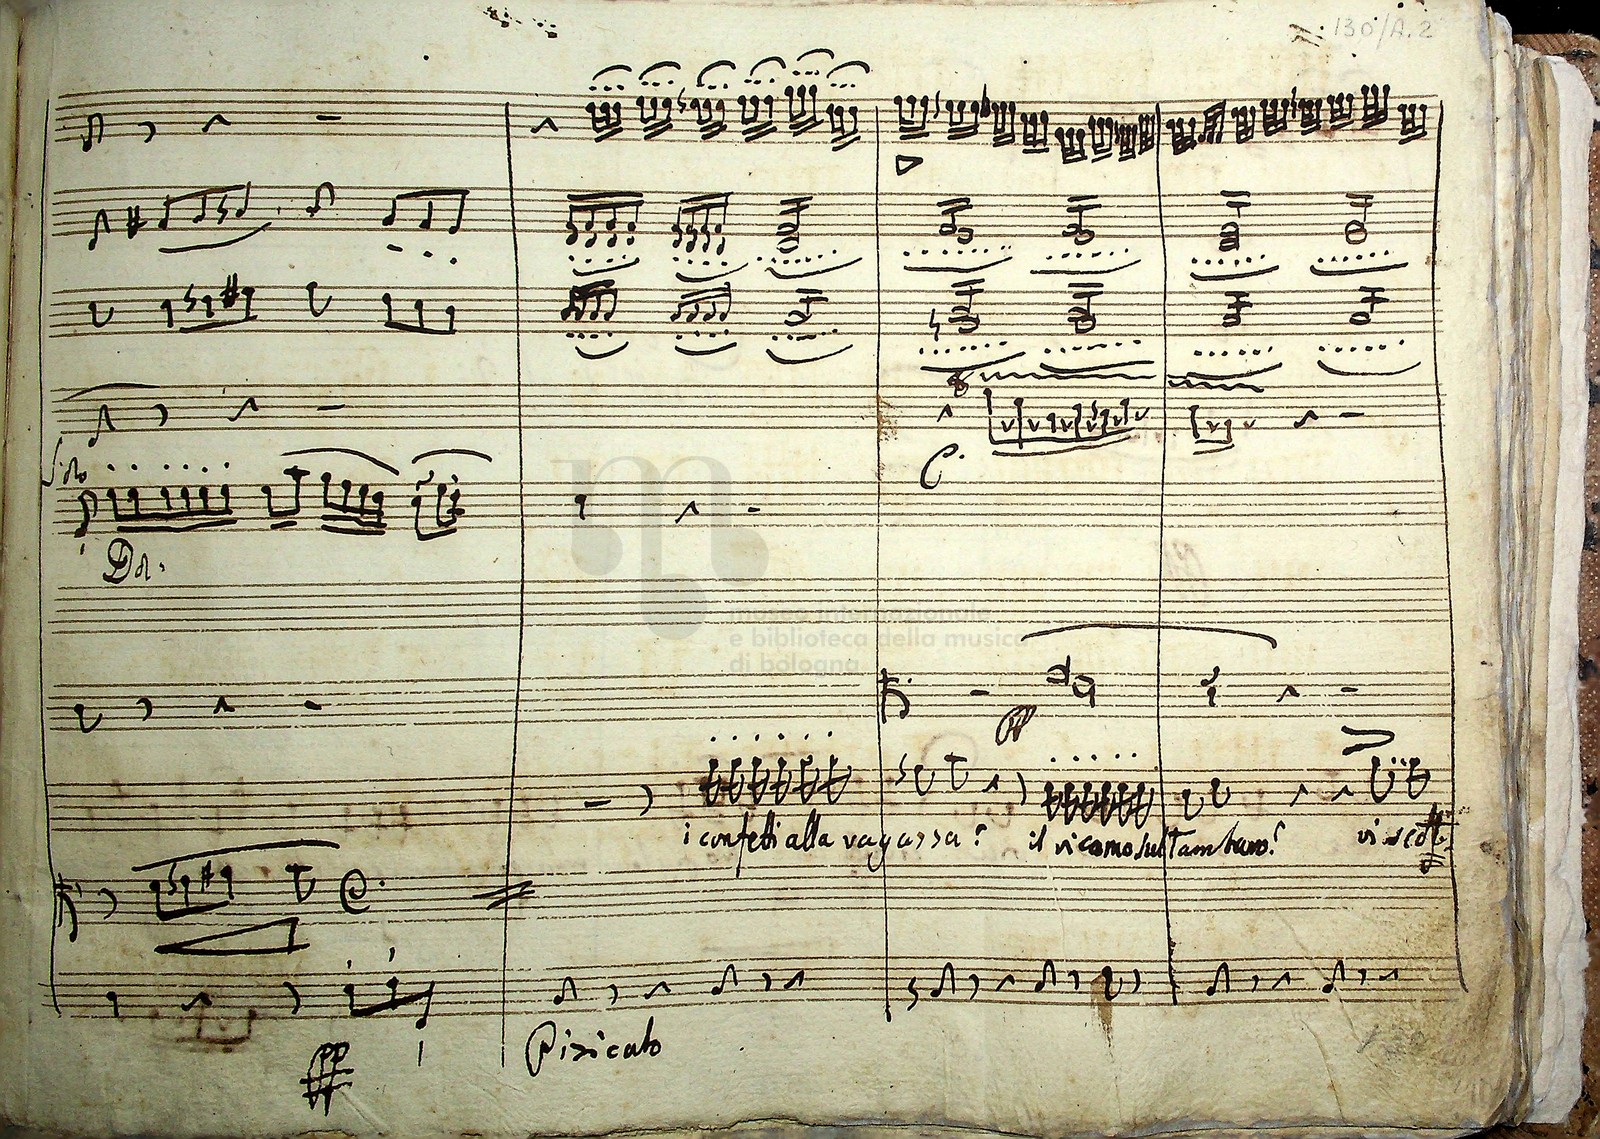 130/A.2
Solo
Do.
museo internazionale
e biblioteca della musica
di bologna
i confetti alla ragassa? il vicomo sul Tamburo? vi scott
Pizicato